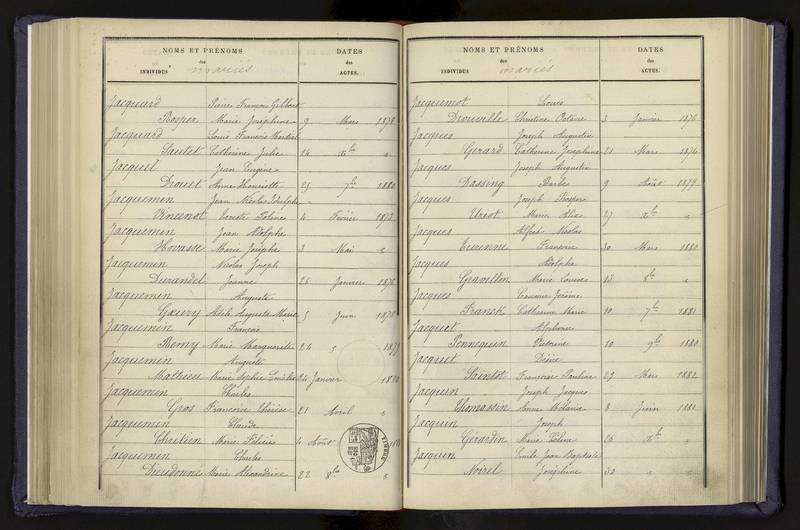 NOMS ET PRÉNOMS DATES
des des
INDIVIDUS mariés ACTES.
Jacquard Pierre François Gilbert
Bosper Marie Joséphine 9 Mars 1878
Jacquard Louis François
Sautet Catherine Julie 24 Xbre "
Jacquel Jean Eugène
Drouet Anne Henriette 25 7bre 1880
Jacquemin Jean Nicolas
Vincenot 4 Février 1873
Jacquemin Jean Adolphe
Hovasse Marie Josèphe 3 Mai "
Jacquemin Nicolas Joseph
Durandel Jeanne 26 Janvier 1876
Jacquemin Auguste
Gœury Adèle Auguste Marie 5 Juin 1878
Jacquemin François
Remy Marie Marguerite 24 " 1879
Jacquemin Auguste
Mathieu Marie 24 Janvier 1880
Jacquemin Charles
Gros Françoise Thérèse 21 Avril "
Jacquemin Claude
Chrétien Marie Félicie 4 Août
Jacquemin Charles
Dieudonné Marie Alexandrine 22 8bre "
NOMS ET PRÉNOMS DATES
des des
INDIVIDUS mariés ACTES.
Jacquemot Louis
Diouville Christine Octavie 3 Janvier 1876
Jacques Joseph Augustin
Gérard Catherine Joséphine 21 Mars 1876
Jacques Joseph Augustin
Dassing Barbe 9 Août 1879
Jacques Joseph Prosper
Uriot Marie 27 Xbre "
Jacques Alfred Nicolas
Eurienne Françoise 30 Mars 1880
Jacques Adolphe
Gravillon Marie Louise 13 8bre "
Jacques Jérôme
Franck Catherine Marie 10 7bre 1881
Jacquet Alphonse
Pennequin Victoire 10 9bre 1880
Jacquet Désiré
Saintot Françoise Pauline 27 Mars 1882
Jacquin Joseph Jacques
Thomassin Anne Mélanie 8 Juin 1881
Jacquin Joseph
Gérardin Marie 26 Xbre "
Jacquin Emile Jean Baptiste
Noirel Joséphine 30 " "